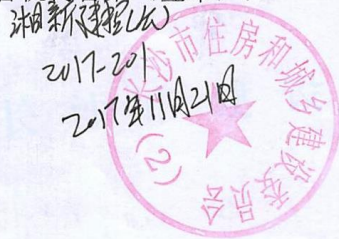 湘新建控(长)
2017-201
2017年11月21日
长沙市住房和城乡建设委员会
(2)